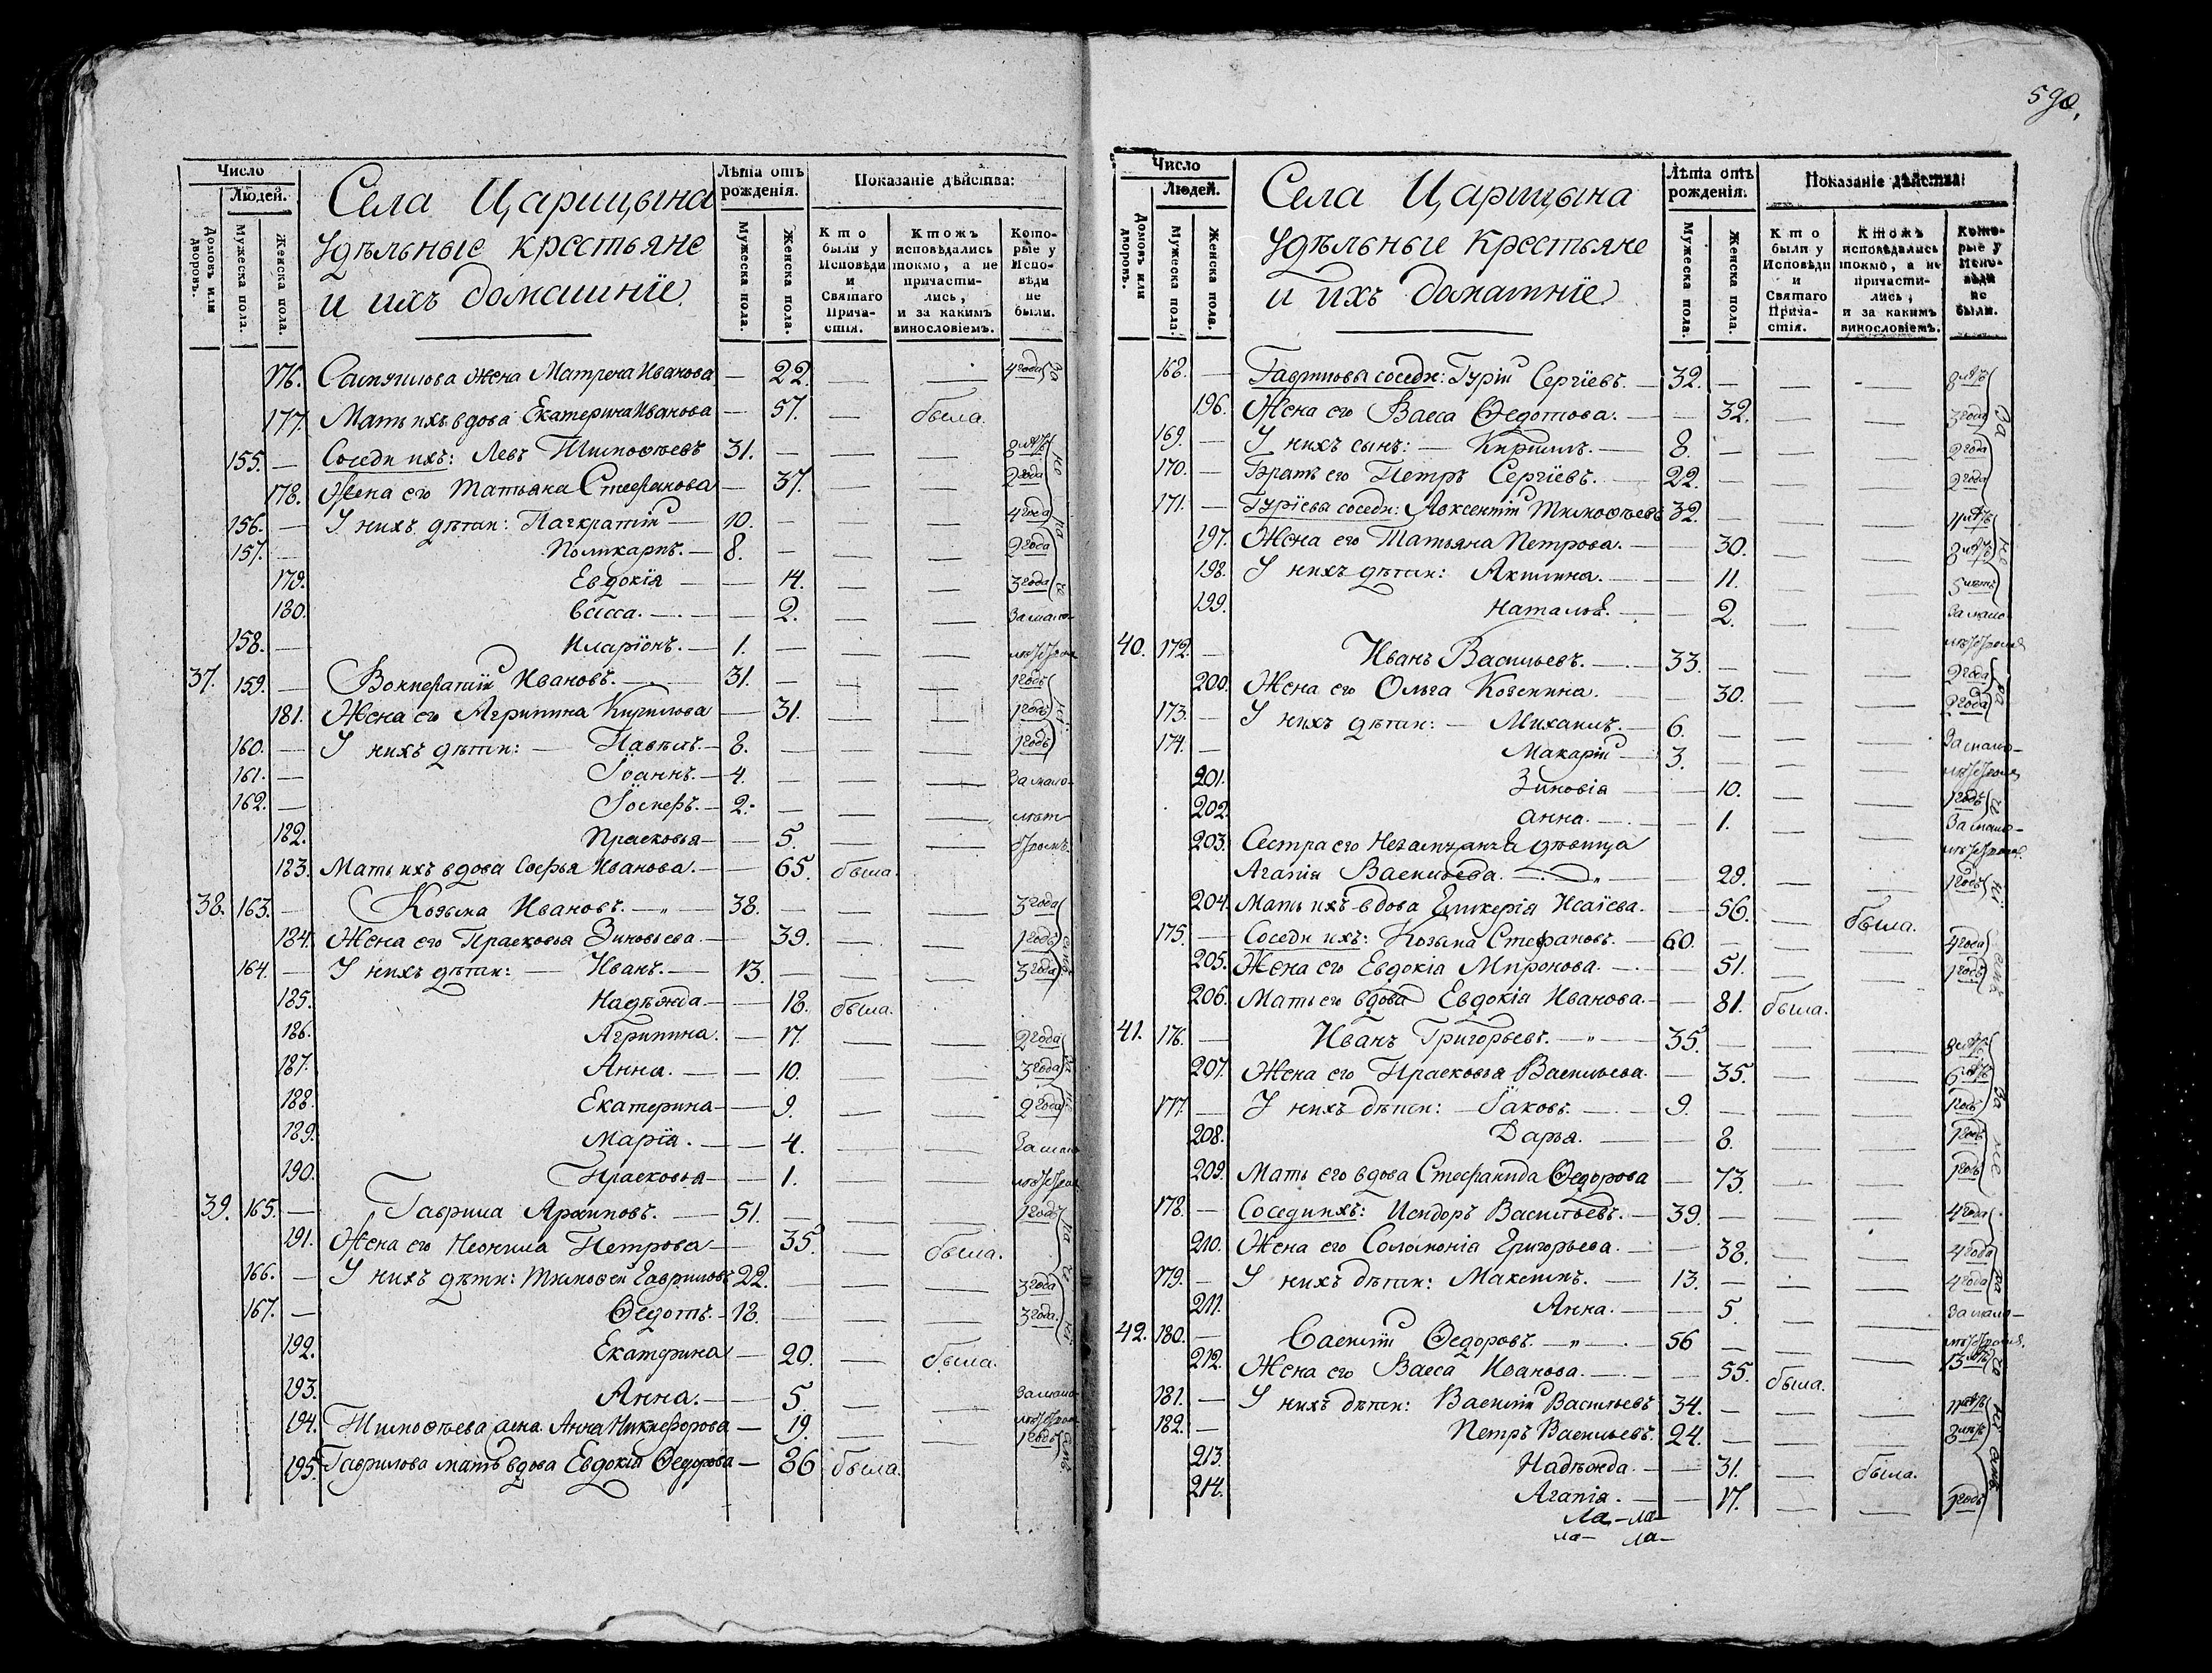 590,
Число
Людей.
Домовъ или дворовъ.
Мужеска пола.
Женска пола.
Села Царицына
Удѣльные крестьяне
и ихъ домашніе
Лѣта отъ рожденія.
Мужеска пола.
Женска пола.
Показаніе дѣйства:
Кто были у Исповѣди и Святаго Причастія.
Ктожъ исповѣдались токмо, а не причастились, и за какимъ винословіемъ.
Которые у Исповѣди не были.
176. жена Матрена Иванова — 22. — — 4 года
177. Мать ихъ вдова Екатерина Иванова — 57. — была.
155. — Соседи ихъ: Левъ Тимоѳеевъ 31. — — —
178. Жена его Татьяна Стефанова — 37. — — 2 года
156. — У нихъ дѣти: Панкратій — 10. — — — 4 года
157. — Поликарпъ. — 8. — — — 2 года
179. Евдокія — — 14. — — 3 года
180. Васса. — — 2. — — За мало-
158. — Иларіонъ. — 1. — — —
37. 159. — Ивановъ. — 31. — — — 1 годъ
181. Жена его Агрипина Кирилова — 31. — — 1 годъ
160. — У нихъ дѣти: — Павелъ. — 8. — — — 1 годъ
161. — Іоаннъ. — 4. — — — За мало-
162. — Іосифъ. — 2. — — —
182. Прасковья — — 5. — —
183. Мать ихъ вдова Софья Иванова. — — 65. была.
38. 163. — Козьма Ивановъ. — „ — 38. — — — 3 года
184. Жена его Прасковья Зиновьева. — 39. — — 1 годъ
164. — У нихъ дѣти: — Иванъ. — 13. — — — 3 года
185. Надѣжда — — 18. была.
186. Агрипина. — 17. — — 2 года
187. Анна. — — 10. — — 3 года
188. Екатерина — — 9. — — 2 года
189. Марія. — — 4. — — За мало
190. Прасковья — — 1. — —
39. 165. — Гаврила Архиповъ. — 51. — — — 1 годъ
191. Жена его Неонила Петрова — 35. — была.
166. — У нихъ дѣти: Тимоѳей Гавриловъ 22. — — — 3 года
167. — Ѳедотъ. — 18. — — — 3 года.
192. Екатерина — 20. — была.
193. Анна. — — 5. — — За мало-
194. Тимоѳеева жена Анна Никифорова — 19. — — 1 годъ
195. Гаврилова мать вдова Евдокія Ѳедорова — 86 была.
Число
Людей.
Домовъ или дворовъ.
Мужеска пола.
Женска пола.
Села Царицына
Удѣльные крестьяне
и ихъ домашніе
Лѣта отъ рожденія.
Мужеска пола.
Женска пола.
Показаніе дѣйства:
Кто были у Исповѣди и Святаго Причастія.
Ктожъ исповѣдались токмо, а не причастились, и за какимъ винословіемъ.
Которые у Исповѣди не были.
168. — соседи: Гурій Сергіевъ. — 32. — — —
196. Жена его Васса Ѳедотова. — — 32. — — 3 года
169. — У нихъ сынъ: — Кирилъ. — 8. — — — 2 года
170. — Братъ его Петръ Сергіевъ. 22. — — — 2 года
171. — Гуріева соседи: Авксентій Тимоѳеевъ 32. — — —
197. Жена его Татьяна Петрова. — — 30. — —
198. У нихъ дѣти: Акилина. — — 11. — — 5 лѣтъ
199. Наталья. — — 2. — — За мало-
40. 172. — Иванъ Васильевъ. — 33. — — — 2 года
200. Жена его Ольга — — 30. — — 2 года
173. — У нихъ дѣти: — Михаилъ. — 6. — — — За мало-
174. — Макарій — 3. — — —
201. Зиновія — — 10. — — 1 годъ
202. Анна. — — 1. — — За мало-
203. Сестра его дѣвица
Агапія Васильева. — „ — 29. — — 1 годъ
204. Мать ихъ вдова Гликерія Исаіева. — 56. — была.
175. — Соседи ихъ: Козьма Стефановъ. — 60. — — — 4 года
205. Жена его Евдокіа Миронова. — 51. — — 1 годъ
206. Мать его вдова Евдокія Иванова. — — 81. была.
41. 176. — Иванъ Григорьевъ. — „ — 35. — — —
207. Жена его Прасковья Васильева. — 35. — —
177. — У нихъ дѣти: — Іаковъ. — 9. — — — 1 годъ
208. Дарья. — — 8. — — 1 годъ
209. Мать его вдова Стефанида Ѳедорова — 73. — — 1 годъ
178. — Соседи ихъ: Исидоръ Васильевъ. — 39. — — — 4 года
210. Жена его Соломонія Григорьева. — — 38. — — 4 года
179. — У нихъ дѣти: Максимъ. — 13. — — — 4 года
211. Анна. — — 5. — — За мало-
42. 180. — Ѳедоровъ. — „ — 56 — — —
212. Жена его Васса Иванова. — — 55. была.
181. — У нихъ дѣти: Василій Васильевъ 34. — — —
182. — Петръ Васильевъ. 24. — — —
213. Надѣжда. — — 31. — была.
214. Агапія. — — 17. — — 1 годъ